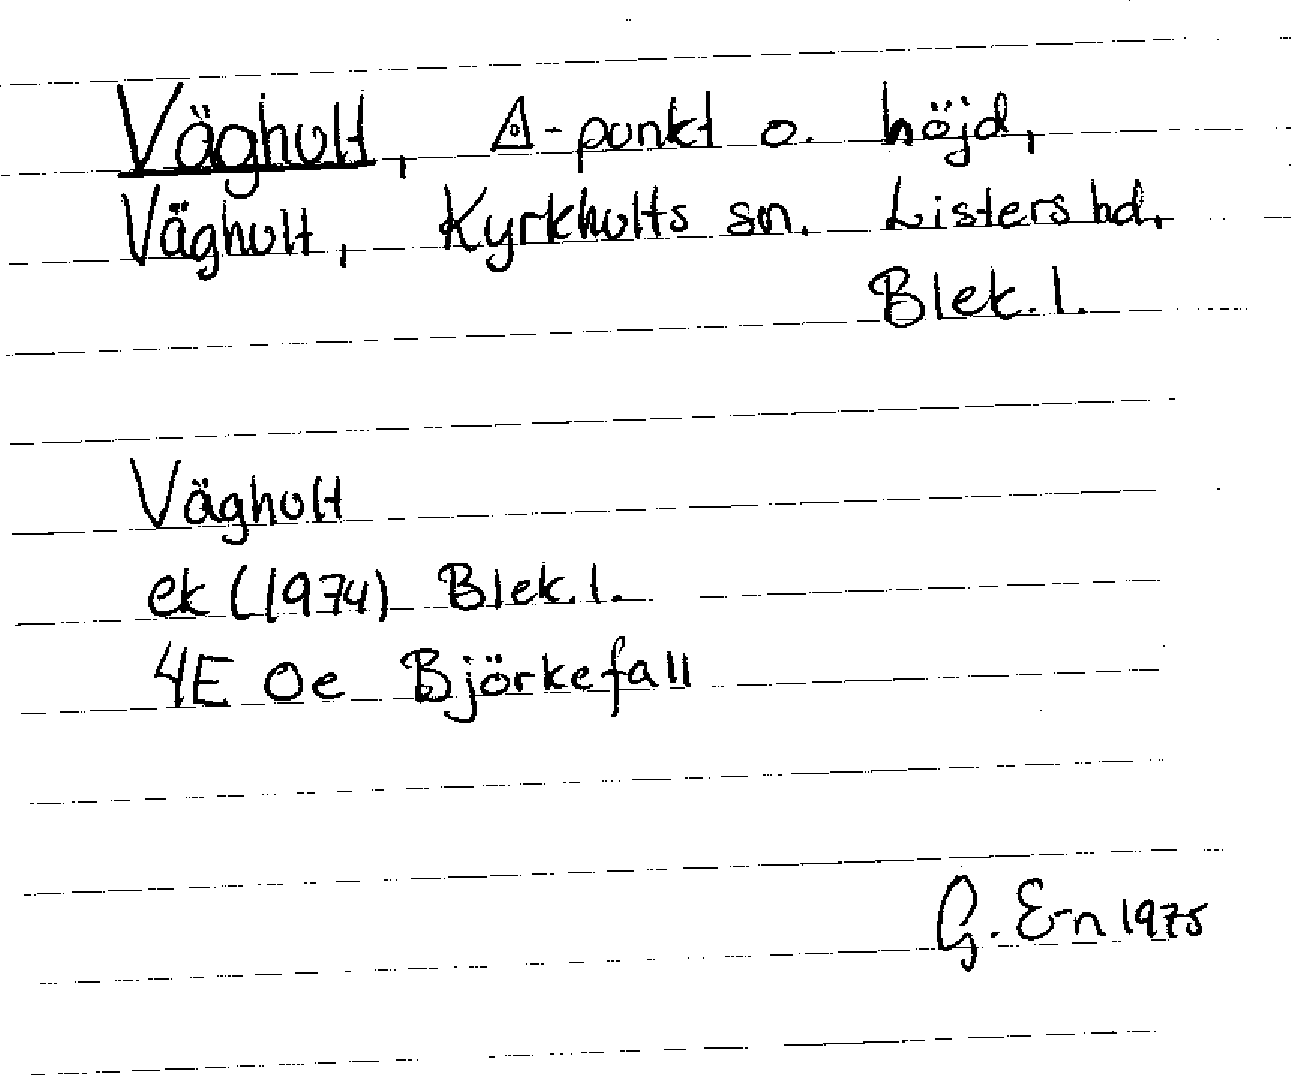 Väghult, △-punkt o. höjd,
Väghult, Kyrkhults sn. Listers hd.
Blek. l.
Vägholt
ek (1974) Blek. l.
4E Oe Björkefall
G. E-n 1975